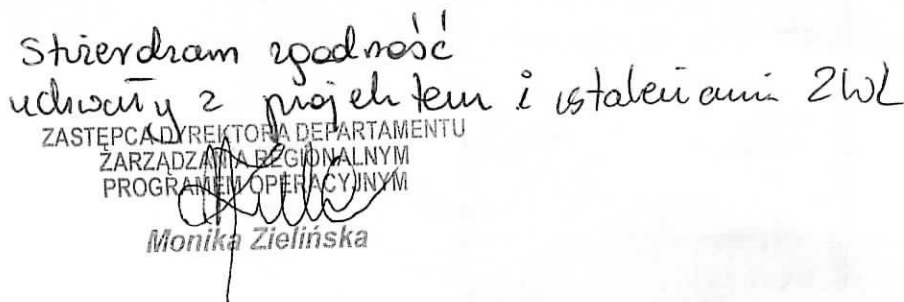 Stwierdzam zgodność
uchwały z projektem i ustaleniami ZWL
ZASTĘPCA DYREKTORA DEPARTAMENTU
ZARZĄDZANIA REGIONALNYM
PROGRAMEM OPERACYJNYM
Monika Zielińska